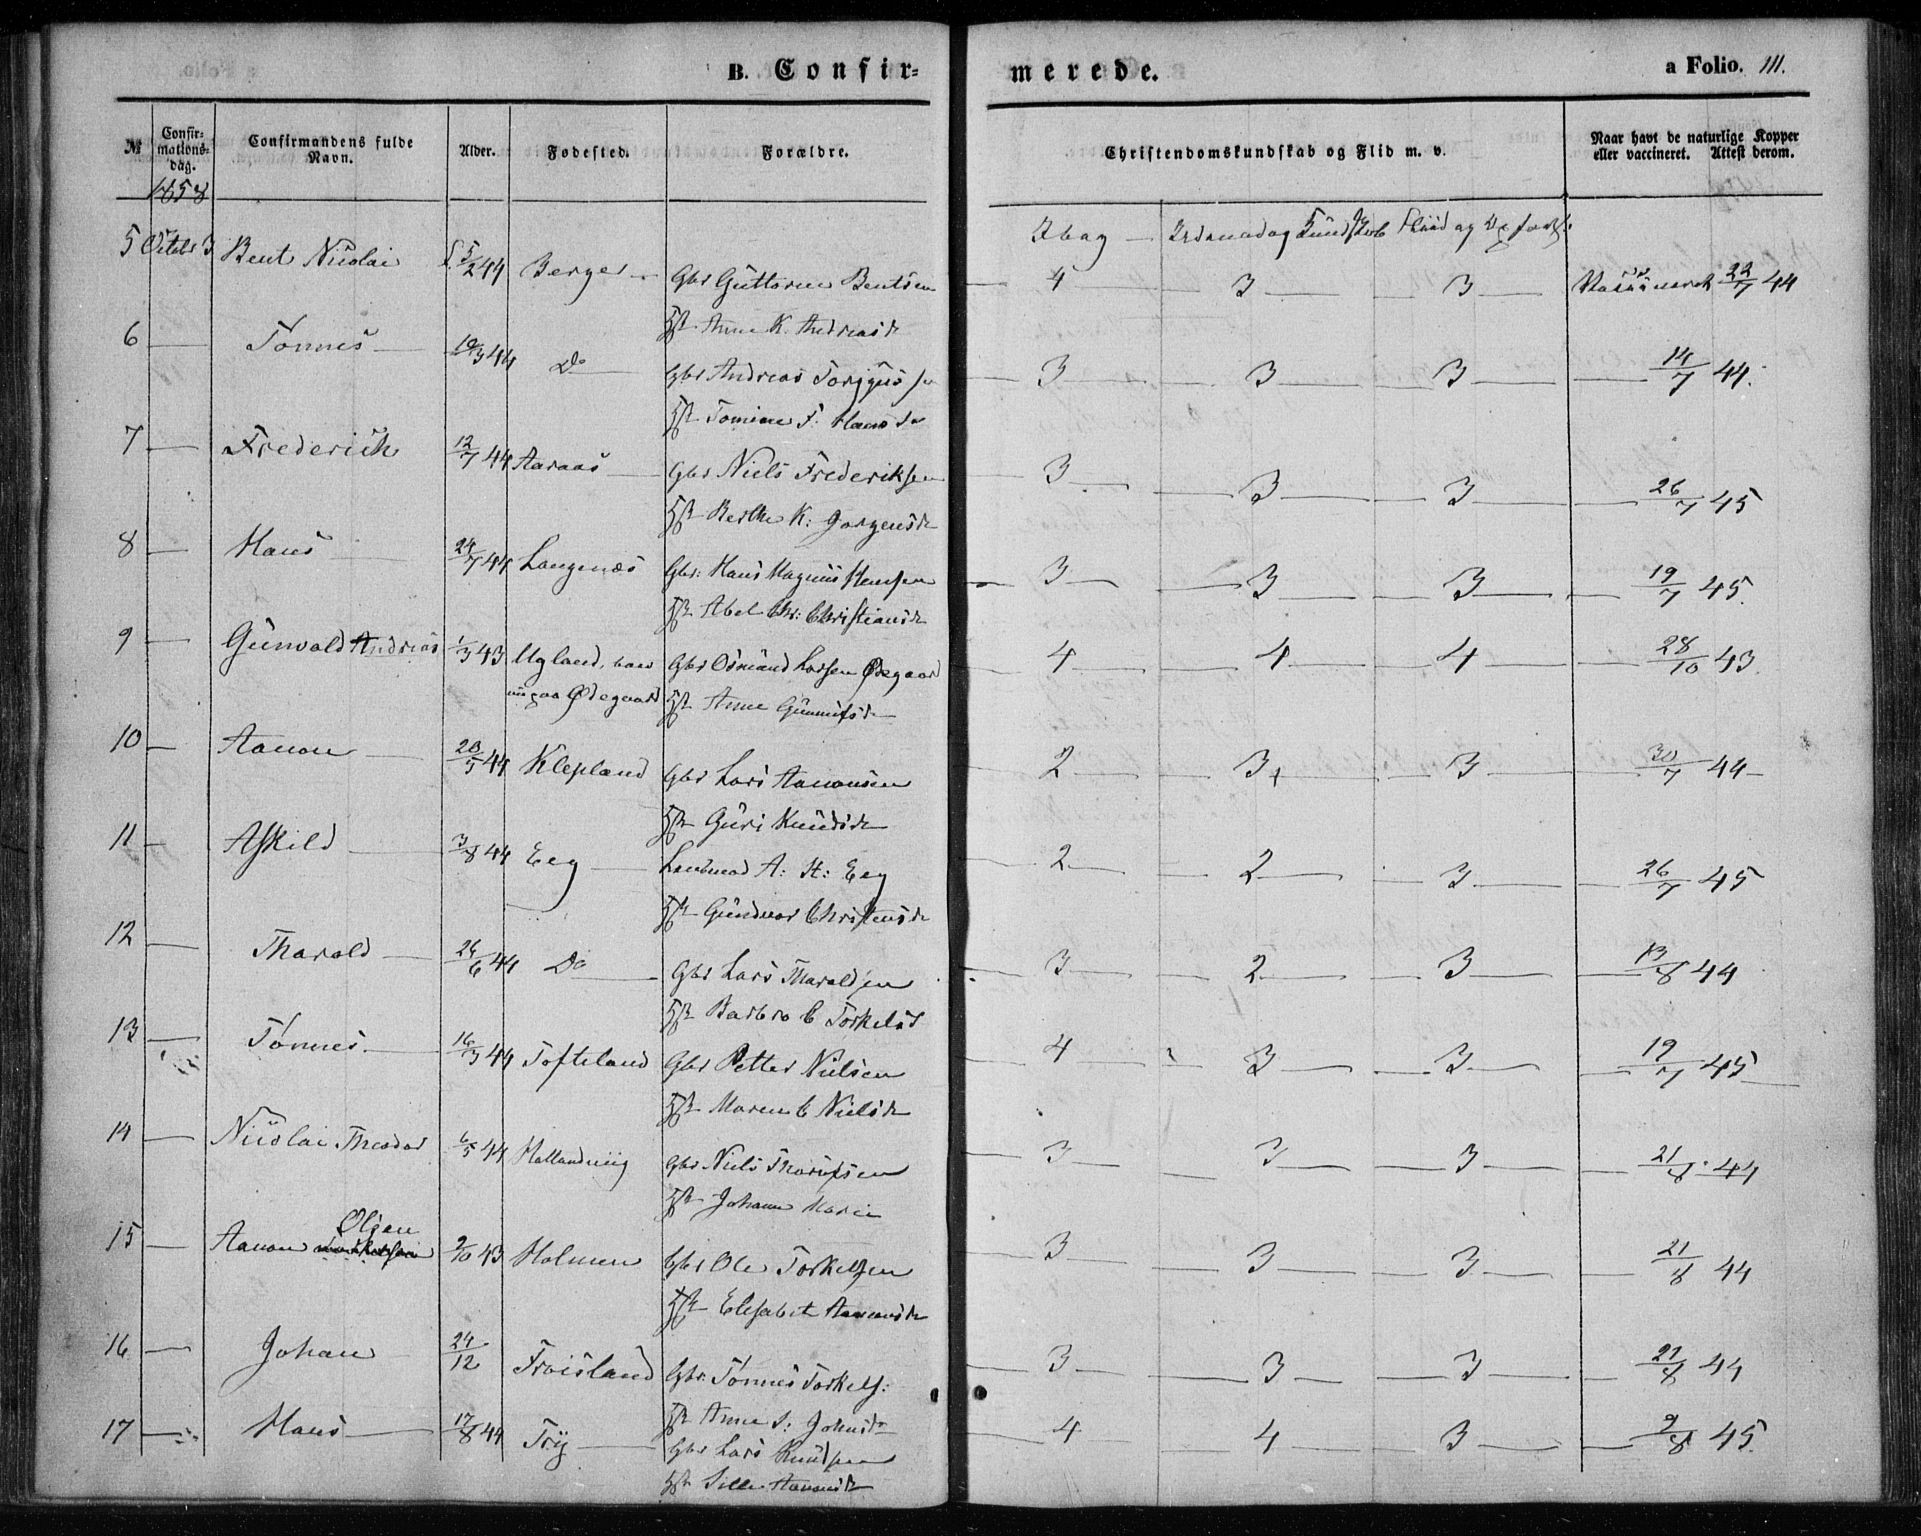 B. Confir=
merede.
a Folio. 111.
№ Confir=mations=dag. Confirmandens fulde Navn. Alder. Fødested. Forældre. Christendomskundskab og Flid m. v. Naar havt de naturlige Kopper eller vaccineret. Attest derom.
1858
Kundskab Fliid og
5 Octobr 3 Bent Nicolai f. 5/2 44 Berge Gbr Guttorm Bentsen 4 3 3 Vaccineret 22/7 44
Hst. Anne K. Andreasdr
6 — Tønnes — 10/3 44 Do Gbr Andreas Torjgus 3 3 3 14/7 44.
Hst. Tomine T. Hansdr
7 — Frederick 12/7 44 Aaraas Gbr Niels Frederiksen 3 3 3 26/7 45
Hst Berthe K: Jørgensdr
8 — Hans 24/7 44 Langenæs Gbr: Hans Magnus Hansen 3 3 3 19/7 45.
Hst Abel Chr: Christiansdr
9 — Gunvald Andreas 1/3 43 Ugland, Gbr Osmund Larsen Ødegaard 4 4 4 28/10 43
paa Ødegaard Hst Anne Gunnufsdr
10 — Aanon 20/5 44 Klepland Gbr Lars Aanonsen 2 3+ 3 30/7 44
Hst Guri Knudsdr
11 Askild 3/8 44 Eeg Lensmad A: St: Eeg 2 2 3 26/7 45
Hst Gundvor Christensdr
12 — Tharald — 26/6 44 Do Gbr Lars Tharaldsen 3 2 3 13/8 44
Hst Barbro C Torkelsd
13 — Tønnes 16/3 44 Tofteland Gbr Petter Nielsen 4 3 3 19/7 45
Hst Maren C Nielsdr
14 — Nicolai Theodor 6/5 44 Hallandviig Gbr Niels Thorufsen 3 3 3 21/8 44
Hst Johanne Marie
Olsen
15 — Aanon 9/10 43 Holmen Gbr Ole Torkelsen 3 3 3 21/8 44
Hst Elisabet Aanonsdr
16 — Johan 24/12 Froisland Gbr. Tønnes Torkels: 3 3 3 21/8 44
Hst Anne S: Johnsdr
17 — Hans 17/8 44 Try Gbr Lars Knudsen 4 4 3 9/8 45
Hst Sille Aanonsdr